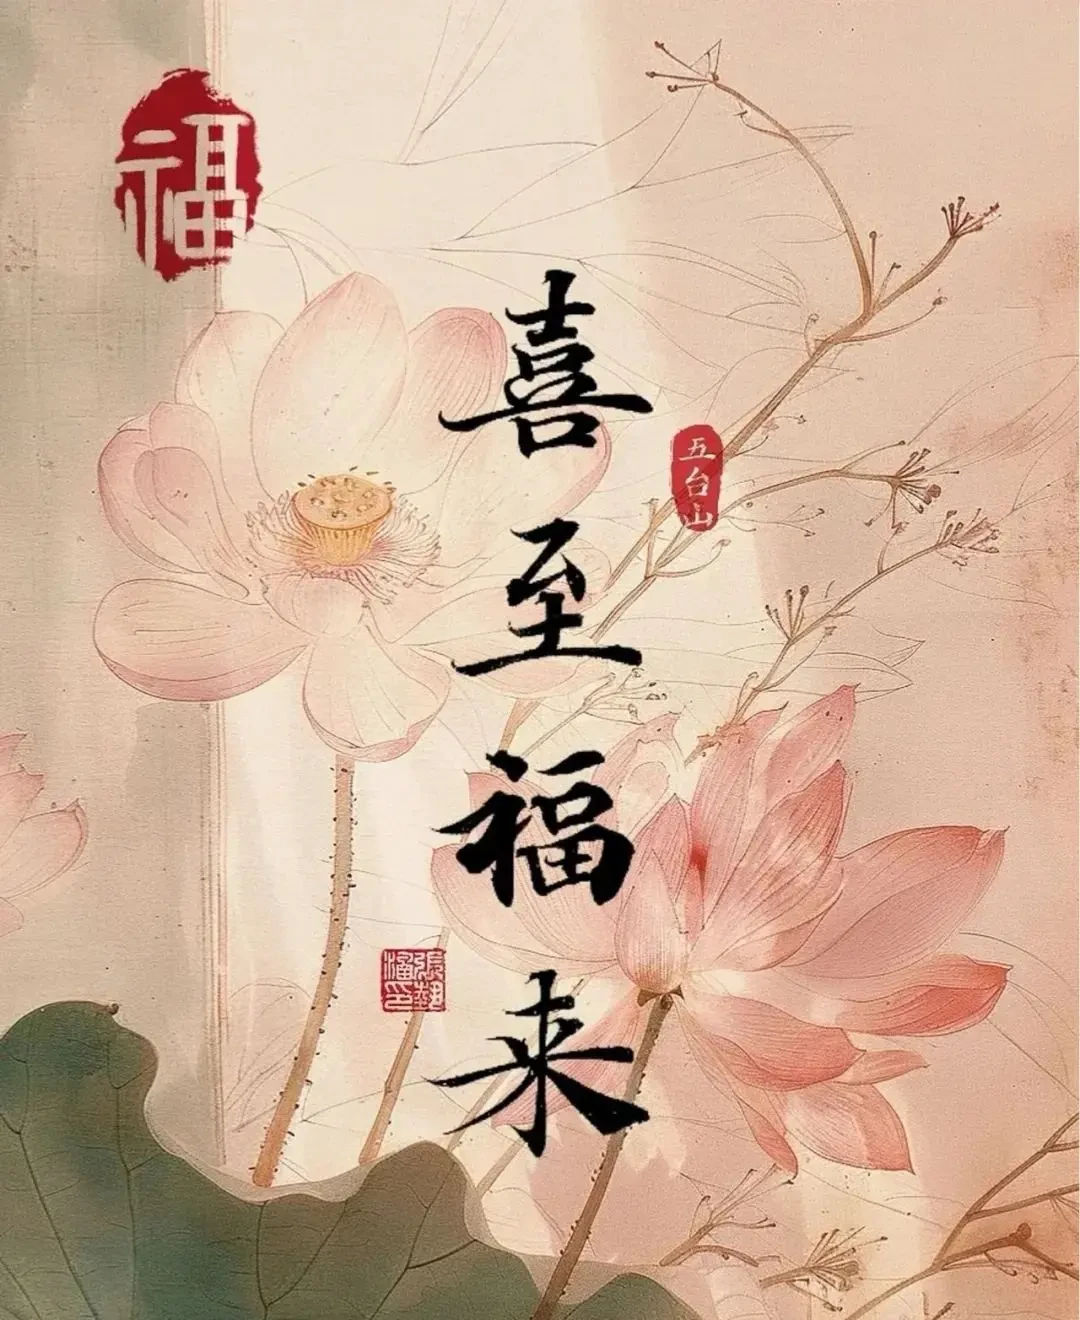 福
喜至福来
五台山